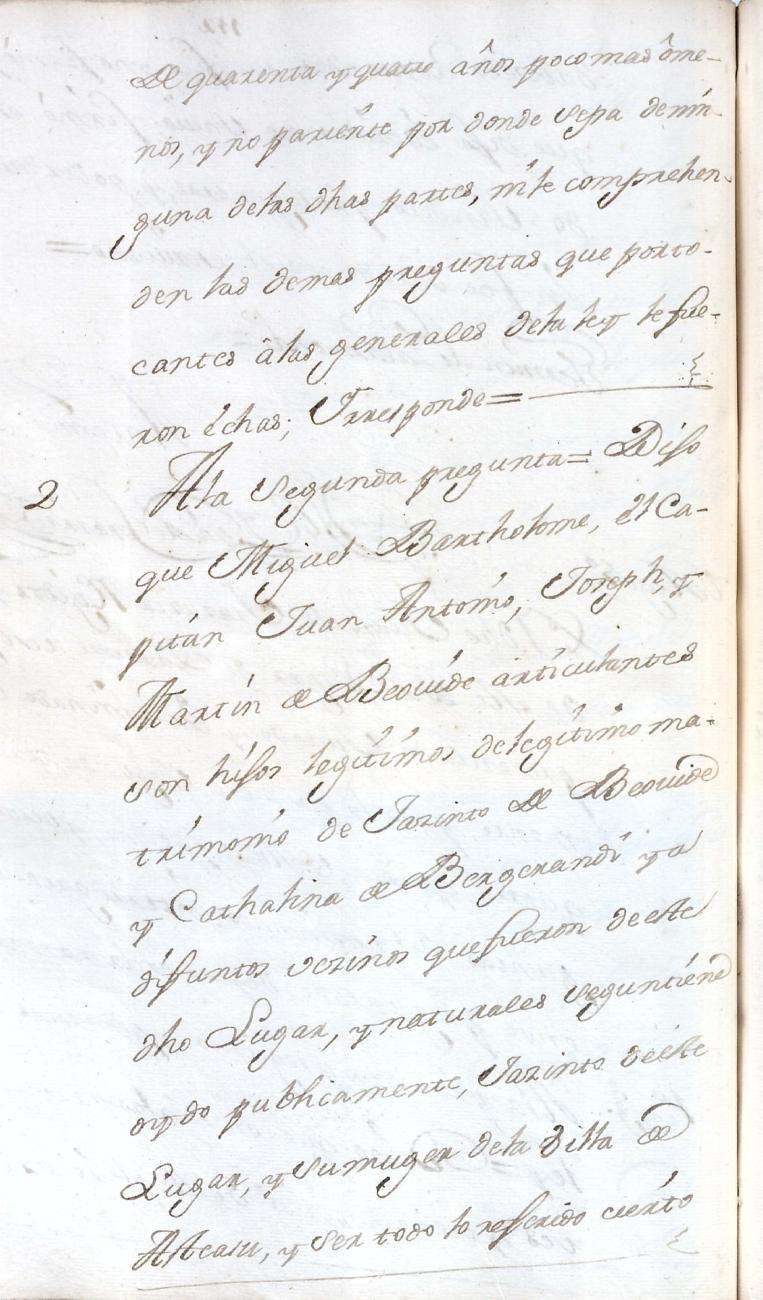 De quarenta y quatro años poco mas ôme-
nos, y no pariente por donde sepa denin-
guna delas dhas partes, nile comprehen-
den las demas preguntas que porto-
cantes âlas generales dela ley le fue-
ron échas; Yrresponde=
2 Ala Segunda pregunta= Dijo
que Miguel Bartholome, él Ca-
pitán Juan Antonio, Joseph, y
Martín de Beovide articulantes
son hijos legítimos delegítimo ma-
trimonio de Jazinto de Beovide
y Cathalina de Bergerandi ya
difuntos vezinos quefueron de este
dho Lugar, y naturales seguntiene
oydo publicamente, Jazinto deéste
Lugar, y sumuger dela Villa de
Asteasu, y ser todo lo referido cierto